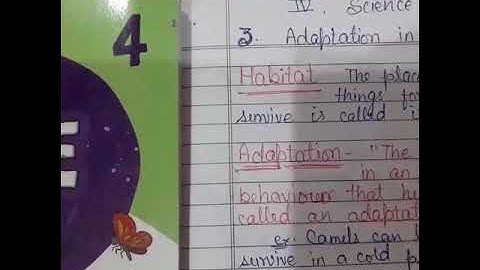 4
IV. Science
3. Adaptation in
Habitat The plac
things fo
survive is called i
Adaptation - "The
in an
behaviour that he
called an adaptat
Ex. Camels can
survive in a cold p